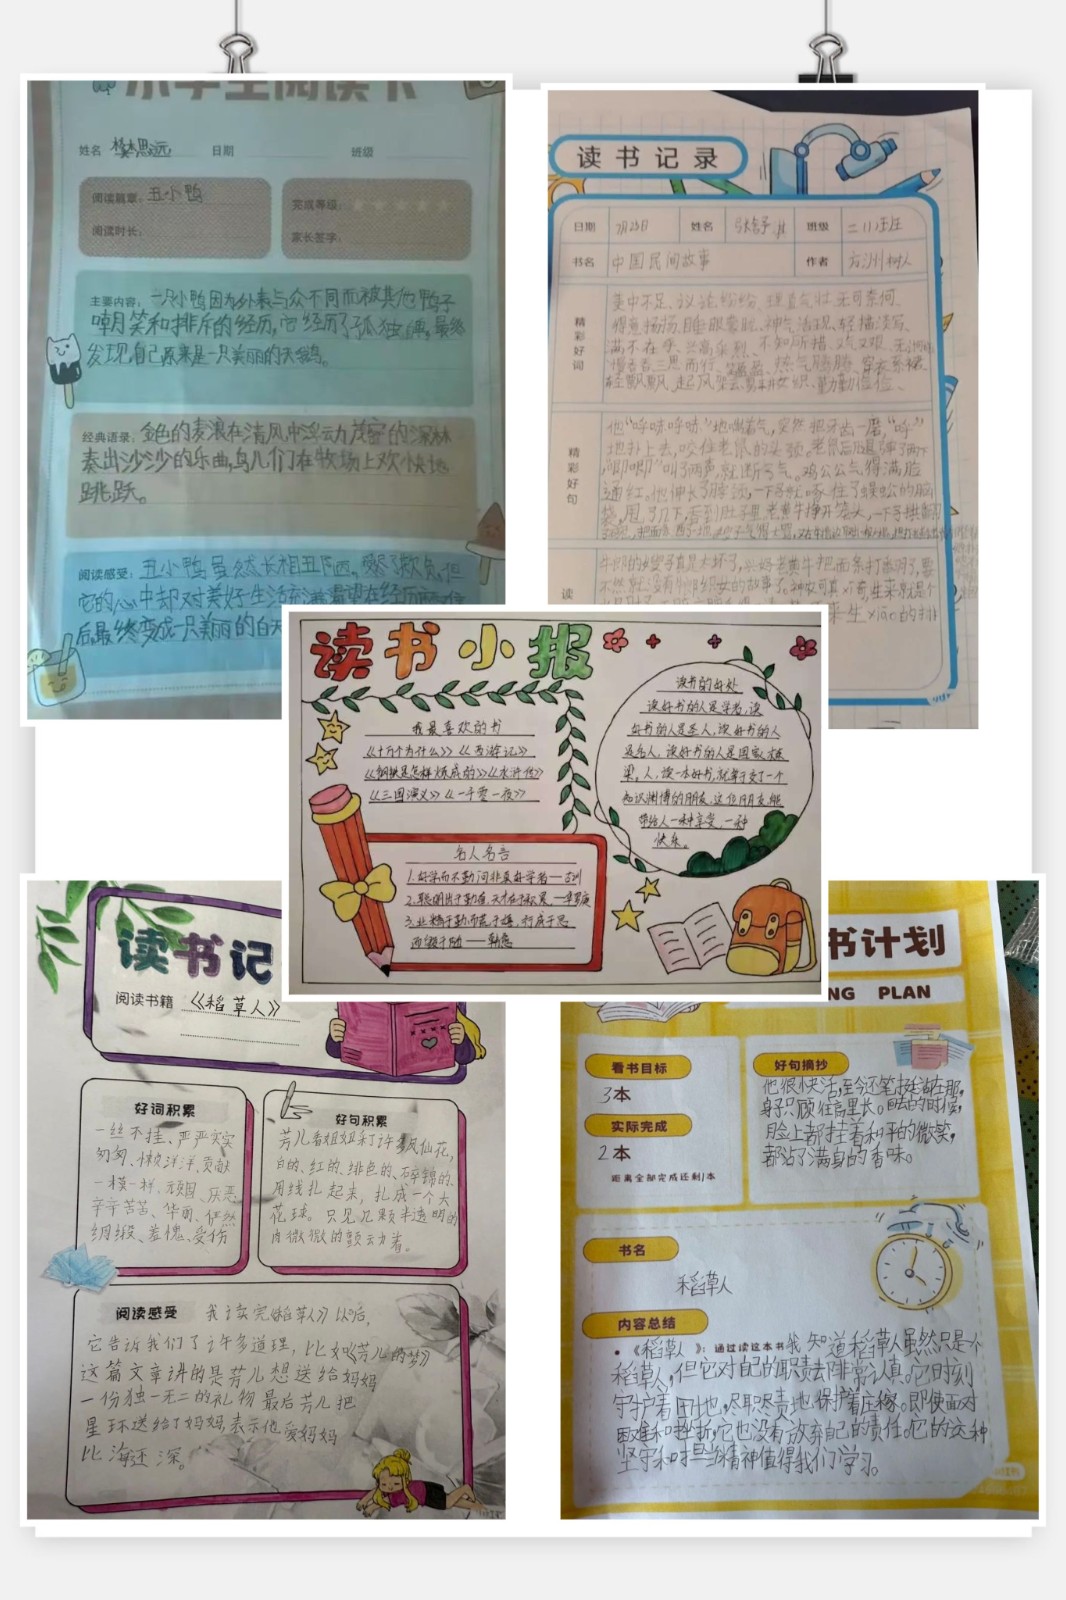 小学生阅读卡
姓名 樊思远 日期 班级
阅读篇章: 丑小鸭
阅读时长:
完成等级:
家长签字:
主要内容: 一只小鸭因为外表与众不同而被其他鸭子
嘲笑和排斥的经历,它经历了孤独 最终
发现自己原来是一只美丽的天鹅。
经典语录: 金色的麦浪在清风中浮动茂密的深林
奏出沙沙的乐曲,鸟儿们在牧场上欢快地
跳跃。
阅读感受: 丑小鸭虽然长相丑陋 但
它的心中却对美好生活充满
后最终变成一只美丽的白天
读书记录
日期 7月23日 姓名 班级
书名 中国民间故事 作者 方洲树人
精彩好词
美中不足、议论纷纷、理直气壮、无可奈何、
得意扬扬、睡眼蒙眬、神气活现、轻描淡写、
满不在乎、兴高采烈、不知所措
三思而行 热气腾腾
轻飘飘 勤勤恳恳、
精彩好句
他“呼哧呼哧”地喘着气,突然把牙齿一磨,“呼”
地扑上去,咬住老鼠的头颈。老鼠
“唧唧”叫了两声,就断了气。鸡公公气得满脸
通红。他伸长了脖颈,一下子就啄住了蜈蚣的脑
袋,甩了几下
读
牛郎的嫂子真是太坏了
读书小报
我最喜欢的书
《十万个为什么》《西游记》
《钢铁是怎样炼成的》《水浒传》
《三国演义》《一千零一夜》
名人名言
1.好学而不勤问非真好学者——
2.聪明出于勤奋,天才在于积累。—华罗庚
3.业精于勤,而荒于嬉,行成于思
而毁于随——韩愈
读书的好处
读好书的人是学者,读
好书的人是圣人,读好书的人
是名人。读好书的人是国家栋
梁。人,读一本好书,就等于交了一个
知识渊博的朋友,这位朋友能
带给人一种享受,一种
快乐。
读书记
阅读书籍 《稻草人》
好词积累
一丝不挂、严严实实
匆匆、懒洋洋、贡献
一模一样、顽固、厌恶
辛辛苦苦、华丽、俨然
绸缎、羞愧、受伤
好句积累
芳儿看姐姐采了许多凤仙花,
白的、红的、绯色的、碎锦的。
用线扎起来,扎成一个大
花球。只见几颗半透明的
肉微微的颤动着。
阅读感受 我读完《稻草人》以后,
它告诉我们了许多道理,比如《芳儿的梦》
这篇文章讲的是芳儿想送给妈妈
一份独一无二的礼物最后芳儿把
星环送给了妈妈,表示他爱妈妈
比海还深。
书计划
NG PLAN
看书目标
3本
实际完成
2本
距离全部完成还剩1本
好句摘抄
他很快活,至今还笔挺站在那,
身子只顾往高里长。 的时候,
脸上都挂着和平的微笑,
都沾了满身的香味。
书名
稻草人
内容总结
•《稻草人》:通过读这本书我知道稻草人虽然只是个
稻草人,但它对自己的职责去非常认真。它时刻
守护着田地,尽职尽责地保护着庄稼。即使面对
困难和挫折,它也没有放弃自己的责任。它的这种
坚守和担当精神值得我们学习。